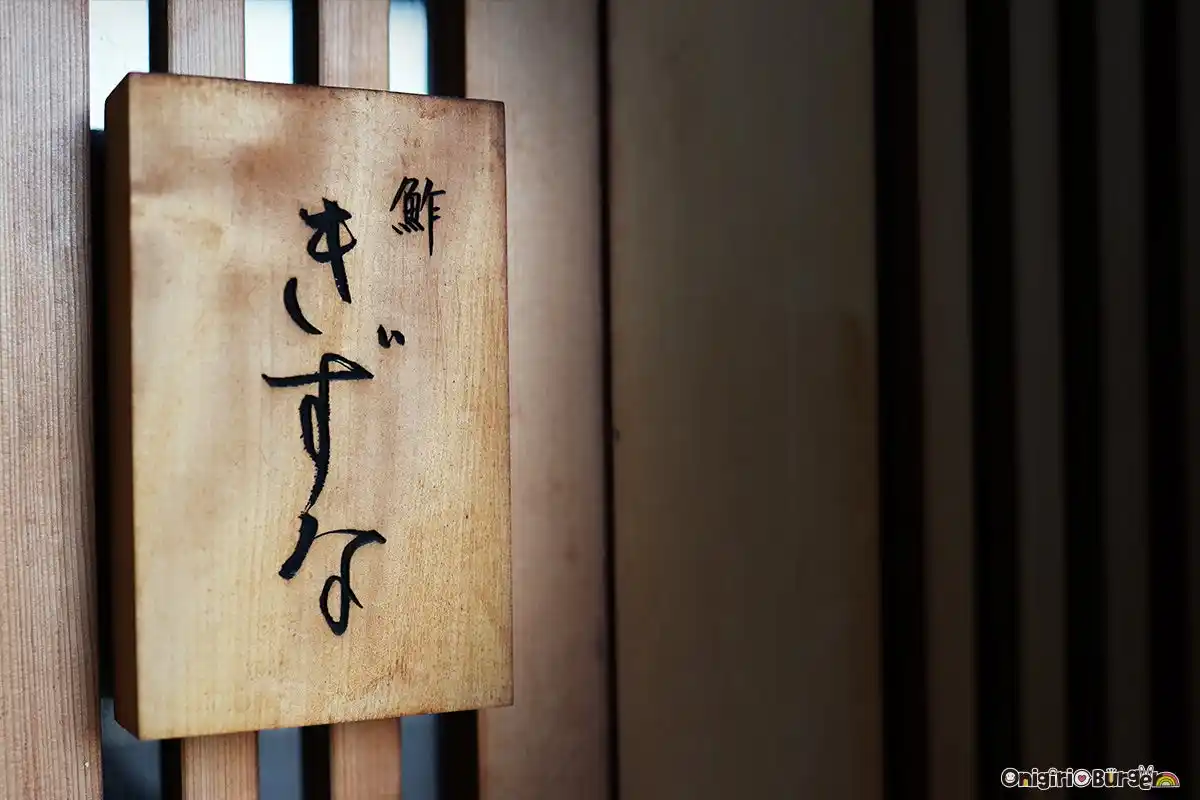 鮓
きずな
Onigiri Burger